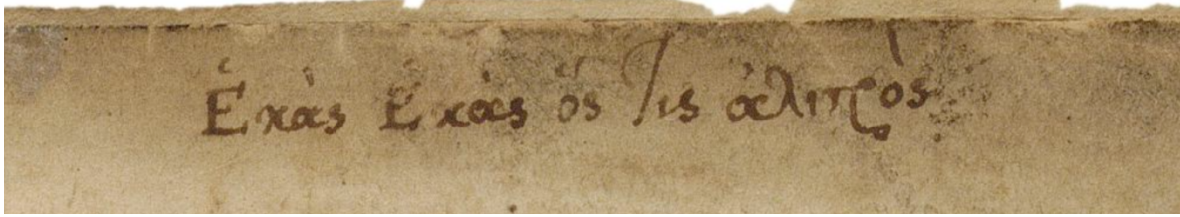 Ἑκὰς Ἑκὰς ὅς τις ἀλιτρὸς